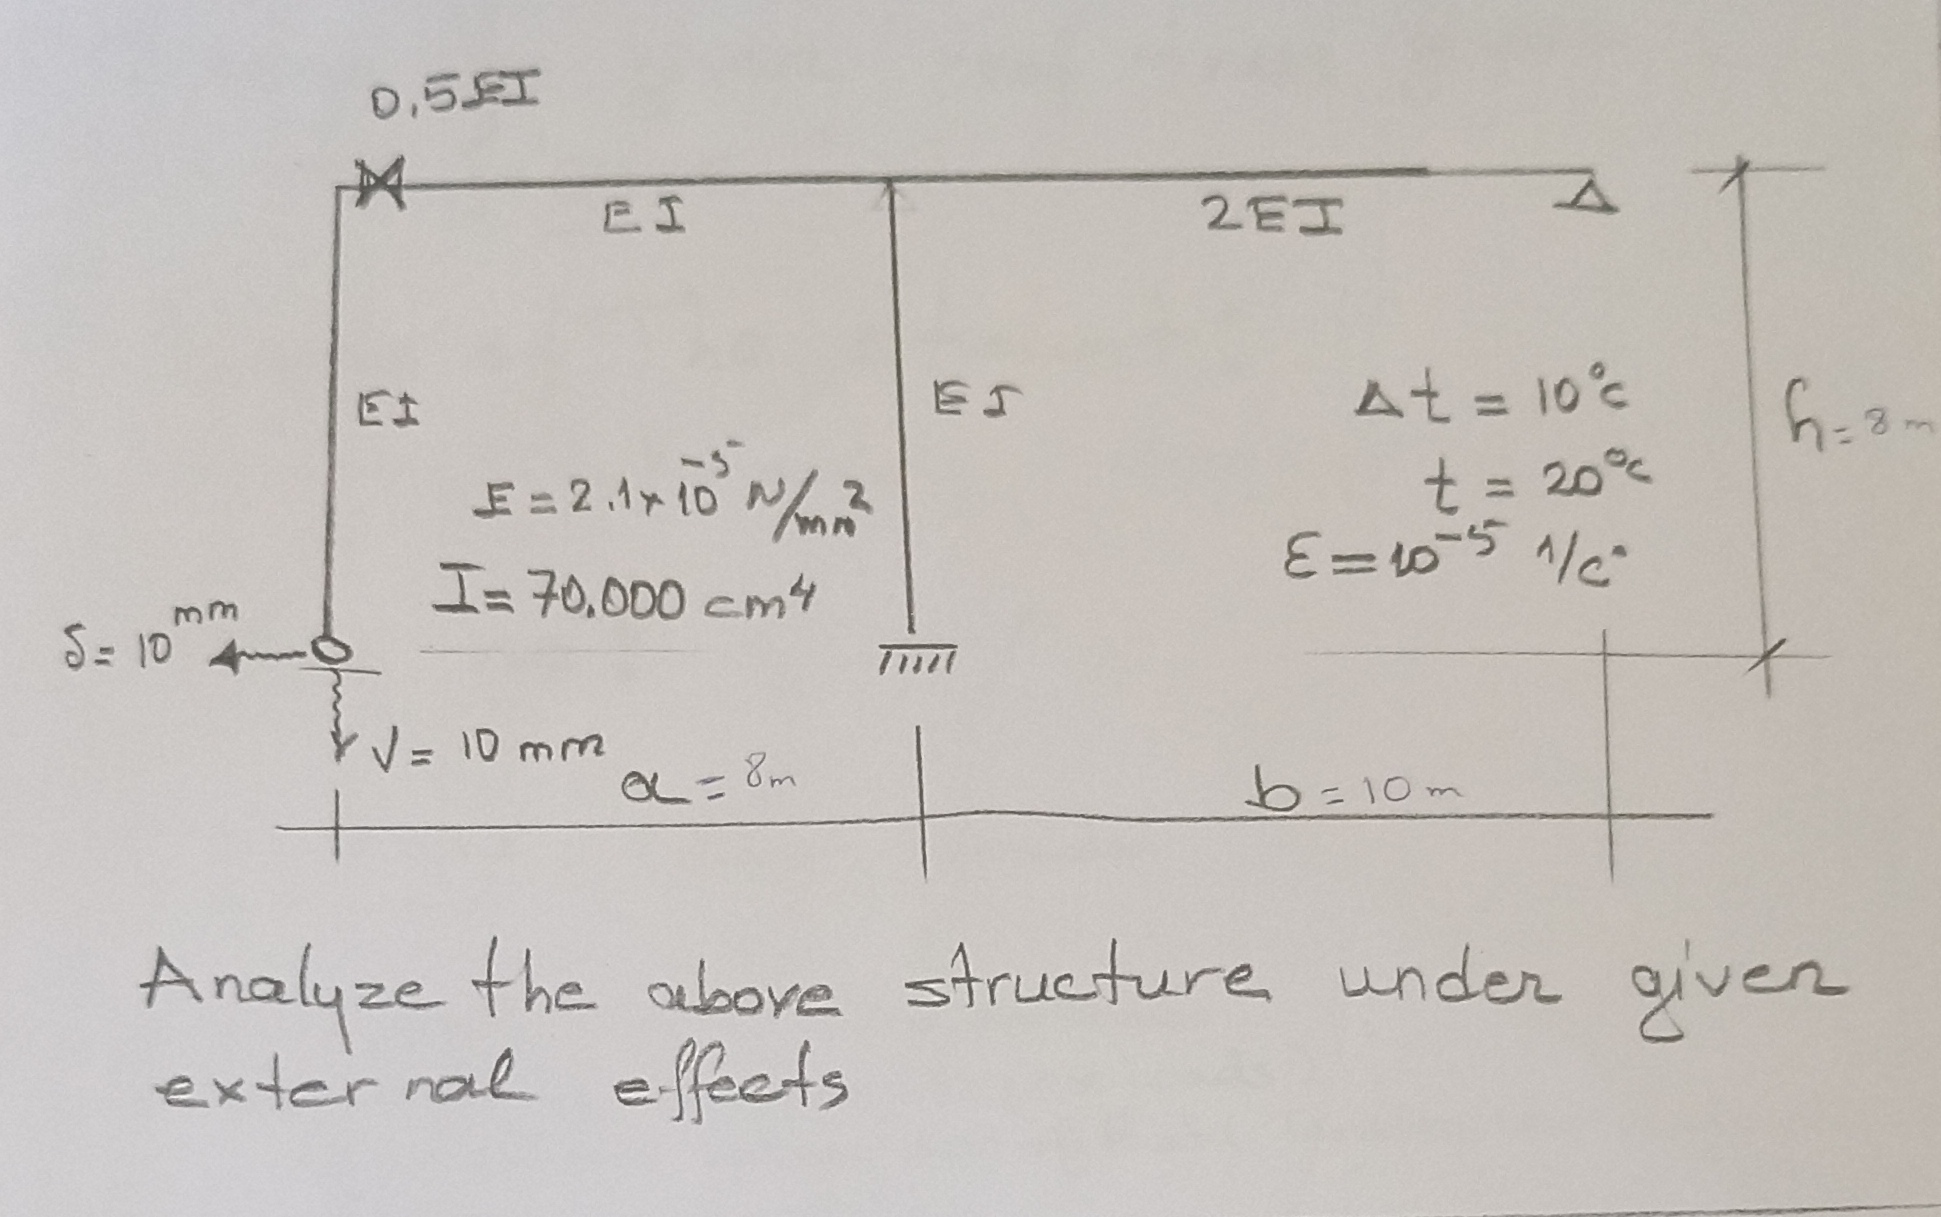 0,5EI
EI
2EI
EI
EI
Δt = 10°c
h = 8 m
E = 2.1 x 10⁻⁵ N/mm²
t = 20°c
I = 70.000 cm⁴
ε = 10⁻⁵ 1/c°
δ = 10 mm
V = 10 mm
a = 8m
b = 10 m
Analyze the above structure under given
external effects